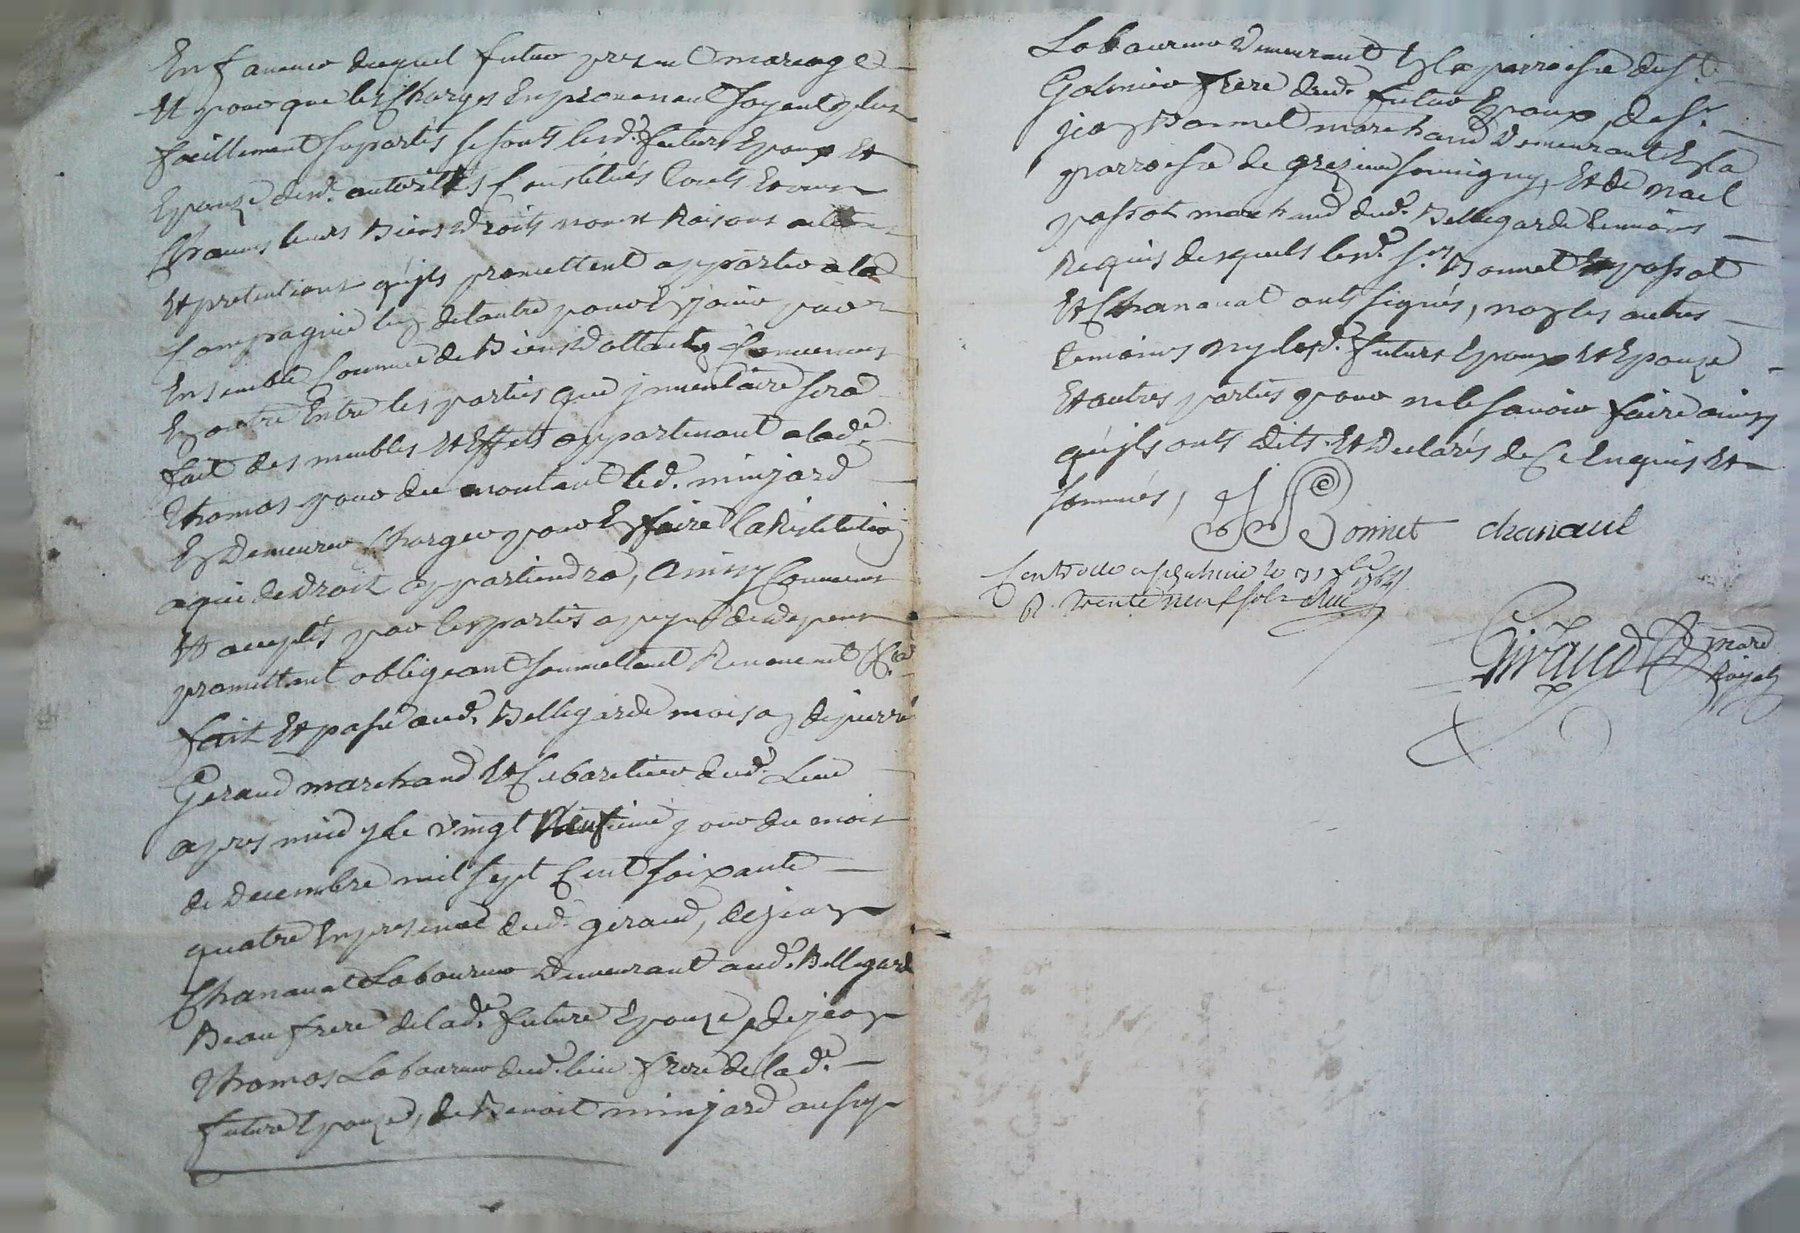 En faveur duquel futur present mariage
Et pour que les Charges En provenant soyent plus
facillement suportés se sont lesd. futurs Epoux Et
Epouze de sd. autorittés Constitués touts Et un
Chacuns leurs Biens Droits noms Raisons actions
Et pretentions qu'jls promettent apporter a la
Compagnie l'un de l'autre pour En jouir par
Ensemble Comme de Biens Dottaux Convenus
En outre Entre les parties que jnventaire sera
fait des meubles Et Effets appartenant a lad.e
Thomas pour du montant led. minjard
En Demeurer Charger pour En faire la Restitution
a qui de Droit appartiendra, Ainsy Convenus
Et acceptés par les parties a peyne de depens
promettant obligeant soumettant Renoncent &.a
fait Et passé aud. Bellegarde maison de pierre
Geraud marchand Et Cabaretier dud. Lieu
apres midy le vingt Neufieme jour du mois
de Decembre mil sept Cent soixante
quatre En presence dud. geraud, de jean
Chanavat Laboureur Demeurant aud. Bellegarde
Beau frere de lad.e future Epouze, de jean
Thomas Laboureur dud. lieu frere de lad.e
future Epouze, de Benoit minjard aussy
Laboureur Demeurant En la parroisse de St.
Galmier frere dud. futur Epoux, de Sr.
jean Bonnet marchand Demeurant En la
parroisse de grezieu Souvigny, Et de noel
passot marchand dud. Bellegarde temoins
Requis desquels lesd. Srs Bonnet Et passot
Et Chanavat ont signés, non les autres
temoins ny lesd. futurs Epoux Et Epouze
Et autres parties pour ne le savoir faire ainsy
qu'jls ont Dits Et Declarés de Ce Enquis Et
sommés,
Bonnet chanavat
Controllé a le 31 Xbre 1764
R. trente neuf sols
Giraud
Royal